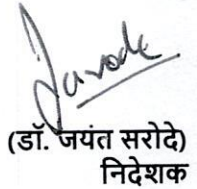 Jarode
(डॉ. जयंत सरोदे)
निदेशक